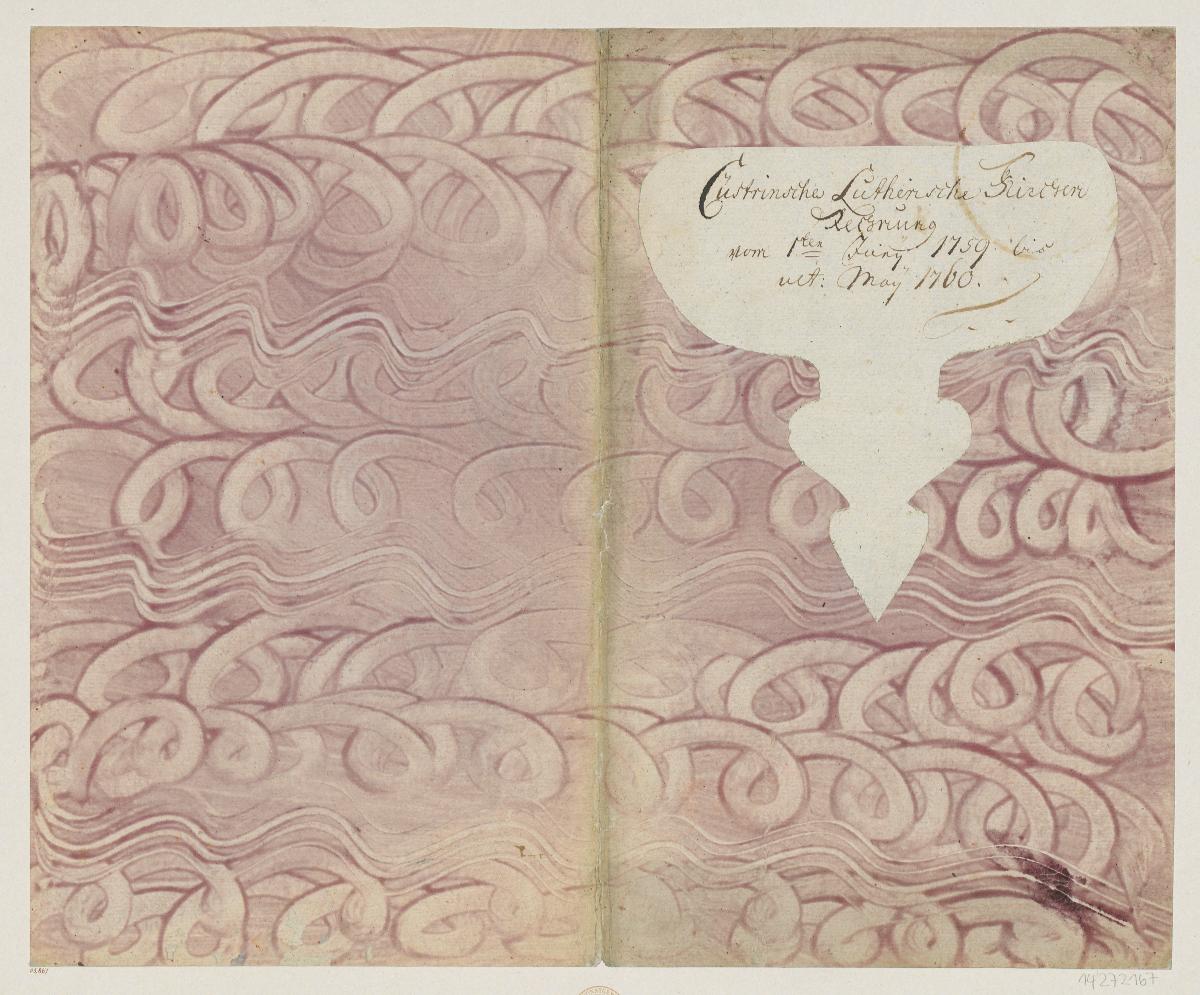 Cüstrinsche Lutherische Kirchen
Rechnung
vom 1ten Juny 1759 bis
ult: Maÿ 1760.
14272167